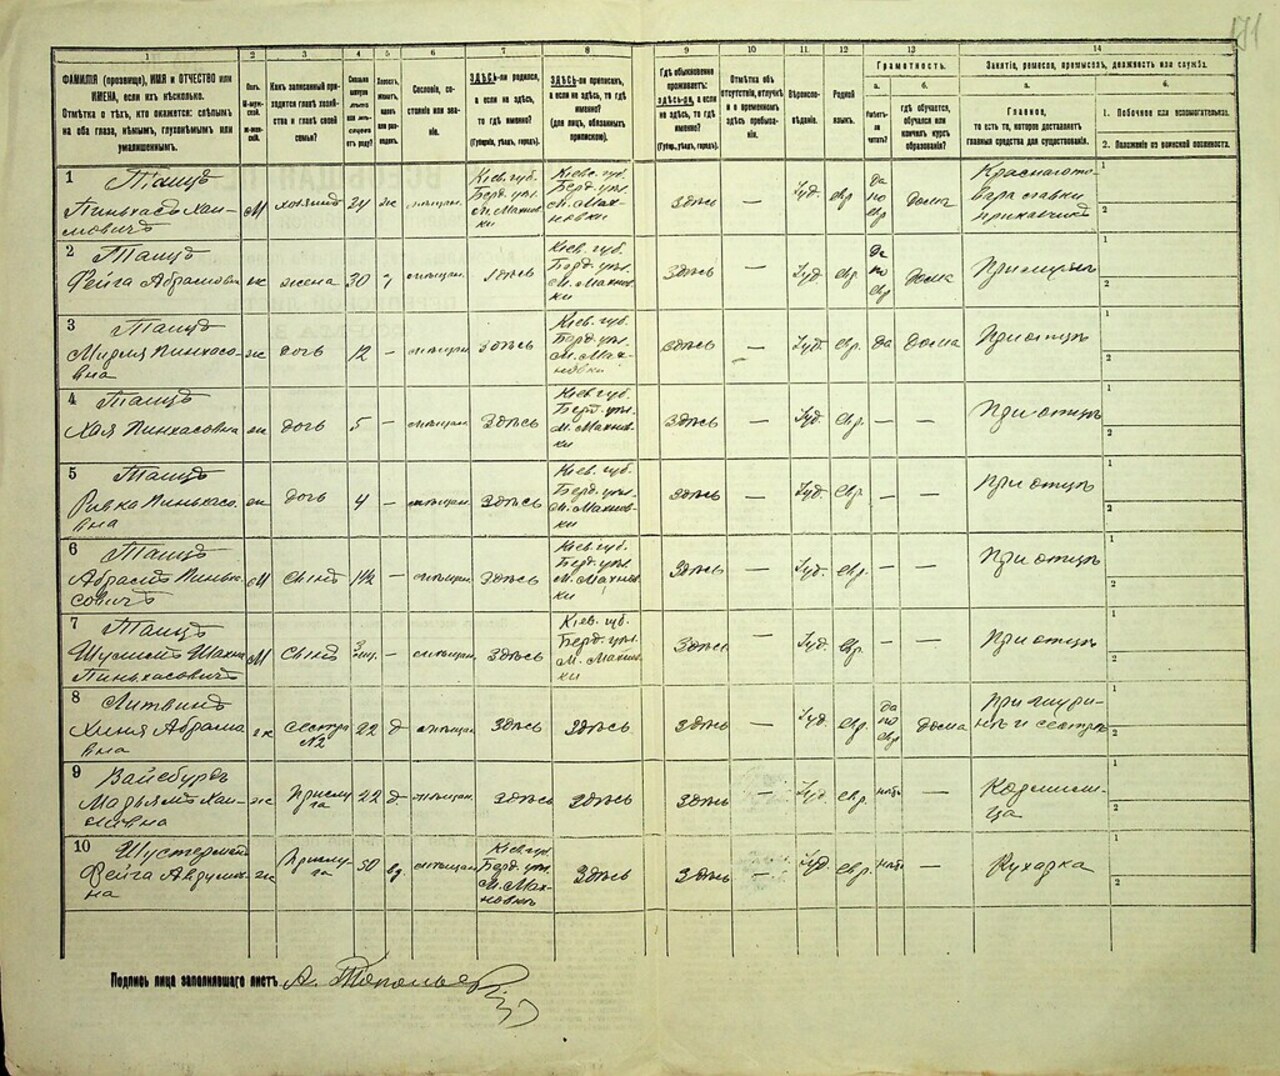 171
1 2 3 4 5 6 7 8 9 10 11 12 13 14
ФАМИЛІЯ (прозвище), ИМЯ и ОТЧЕСТВО или
ИМЕНА, если ихъ нѣсколько.
Отмѣтка о тѣхъ, кто окажется: слѣпымъ
на оба глаза, нѣмымъ, глухонѣмымъ или
умалишеннымъ.
Полъ.
М-мужской.
Ж-женскій.
Какъ записанный приходится главѣ хозяйства и главѣ своей семьи?
Сословіе, состояніе или званіе.
ЗДѢСЬ-ли родился,
а если не здѣсь,
то гдѣ именно?
(Губернія, уѣздъ, городъ).
ЗДѢСЬ-ли приписанъ,
а если не здѣсь, то гдѣ
именно?
(для лицъ, обязанныхъ
припискою).
Гдѣ обыкновенно
проживаетъ:
здѣсь-ли, а если
не здѣсь, то гдѣ
именно?
(Губ., уѣздъ, городъ).
Отмѣтка объ
отсутствіи, отлучкѣ
и о временномъ
здѣсь пребываніи.
Вѣроисповѣданіе.
Родной
языкъ.
Грамотность.
а.
Умѣетъ-ли
читать?
б.
гдѣ обучается,
обучался или
кончилъ курсъ
образованія?
Занятіе, ремесло, промыселъ, должность или служба.
а.
Главное,
то есть то, которое доставляетъ
главныя средства для существованія.
б.
1. Побочное или вспомогательное.
2. Положеніе по воинской повинности.
1 Танцъ
Пиньхасъ Хаи-
мовичъ
М хозяинъ 34 ж мѣщан.
Кіев. губ.
Берд. уѣз.
М. Махновки
Кіевс. губ.
Берд. уѣз.
М. Мах-
новки
Здѣсь — Іуд. евр.
да
по
евр
Дома
Краснаго то-
вара лавки
прикащикъ
1
2
2 Танцъ
Фейга Абрамовна
ж жена 30 мѣщан. Здѣсь
Кіев. губ.
Берд. уѣз.
М. Махнов-
ки
Здѣсь — Іуд. евр.
да
по
евр
Дома При мужѣ
1
2
3 Танцъ
Мирля Пинхасо-
вна
ж дочь 12 — мѣщан. Здѣсь
Кіев. губ.
Берд. уѣз.
М. Мах-
новки
Здѣсь — Іуд. евр. да Дома При отцѣ
1
2
4 Танцъ
Хая Пинхасовна
ж дочь 5 — мѣщан. Здѣсь
Кіев губ.
Берд. уѣз.
М. Махнов-
ки
Здѣсь — Іуд. евр. — — При отцѣ
1
2
5 Танцъ
Ривка Пиньхасо-
вна
ж дочь 4 — мѣщан. Здѣсь
Кіев. губ.
Берд. уѣз.
М. Махнов-
ки
Здѣсь — Іуд. евр. — — При отцѣ
1
2
6 Танцъ
Абрамъ Пиньха-
совичъ
М сынъ 1½ — мѣщан. Здѣсь
Кіев. губ.
Берд. уѣз.
М. Махнов-
ки
Здѣсь — Іуд. евр. — — При отцѣ
1
2
7 Танцъ
Шулимъ Шахна
Пиньхасовичъ
М сынъ 3 мѣс. — мѣщан. Здѣсь
Кіев. губ.
Берд. уѣз.
М. Махнов-
ки
Здѣсь — Іуд. евр. — — При отцѣ
1
2
8 Литвинъ
Хиня Абрамо
вна
ж сестра
№2
22 д мѣщан. Здѣсь Здѣсь Здѣсь — Іуд. евр.
да
по
евр
дома
При шури-
нѣ и сестрѣ
1
2
9 Вайсбурдъ
Марьямъ Хаи-
мовна
ж Прислу
га
22 д мѣщан. Здѣсь Здѣсь Здѣсь — Іуд. евр. нѣтъ —
Кормили-
ца
1
2
10 Шустерманъ
Фейга
ж Прислу-
га
50 вд мѣщан
Кіев губ.
Берд. уѣз.
М. Мах-
новкѣ
Здѣсь Здѣсь — Іуд. евр. нѣтъ — Кухарка
1
2
Подпись лица заполнявшаго листъ А.